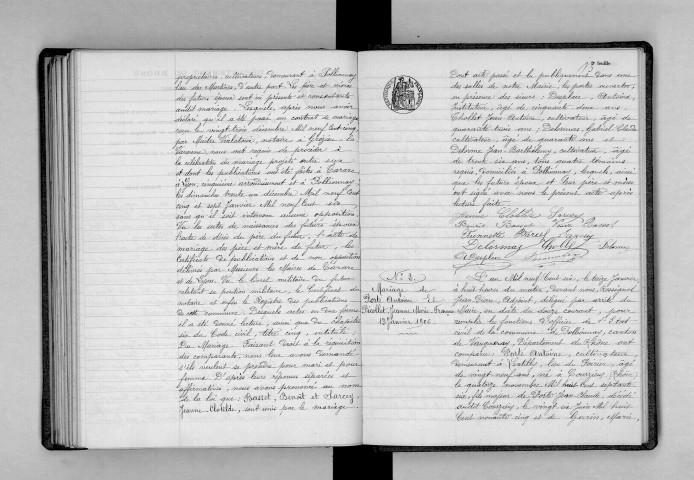 propriétaire cultivateur demeurant à Pollionnay
lieu des Martines, d'autre part. Les père et mère
des futurs époux sont ici présents et consentants
audit mariage. Lesquels, après nous avoir
déclaré qu'il a été passé un contrat de mariage
le vingt trois décembre Mil neuf cent cinq
par Maître Vialatoux, notaire à Grézieu la
Varenne, nous ont requis de procéder à
la célébration du mariage projeté entre eux
et dont les publications ont été faites à Tarare
à Lyon, cinquième arrondissement et à Pollionnay
les dimanches trente un décembre Mil neuf cent
cinq et sept Janvier Mil neuf cent six
sans qu'il soit intervenu aucune opposition.
Vu les actes de naissances des futurs époux
l'acte de décès du père du futur, l'acte de
mariage des père et mère du futur, les
certificats de publications et de non opposition
délivrés par Messieurs les Maires de Tarare
et de Lyon. Vu le livret militaire du futur
relatant sa position militaire, le certificat du
notaire et enfin le Registre des publications
de cette commune. Desquels actes en due forme
il a été donné lecture, ainsi que du chapitre
six du Code civil, titre cinq, intitulé
Du Mariage. Faisant droit à la réquisition
des comparants, nous leur avons demandé
s'ils veulent se prendre pour mari et pour
femme. D'après leurs réponses séparées et
affirmatives, nous avons prononcé au nom
de la loi que : Basset, Benoît et Sarcey
Jeanne Clotilde, sont unis par le mariage.
2e feuille
13
Dont acte passé et lu publiquement dans une
des salles de notre Mairie, les portes ouvertes,
en présence de deux : Antoine,
Instituteur, âgé de cinquante deux ans,
Chollet Jean Antoine, cultivateur, âgé de
quarante trois ans, Delorme, Gabriel Claude
cultivateur, âgé de quarante ans et
Delorme Jean Barthélemy, cultivateur, âgé
de trente six ans, tous quatre témoins
requis, domiciliés à Pollionnay, lesquels, ainsi
que les futurs époux et leurs père et mères
ont signé avec nous le présent acte après
lecture faite.
Jeanne Clotilde Sarcey
Basset
Sarcey
Delorme Chollet Delorme
No 2.
Mariage de
Porte Antoine et
Jeanne Marie
13 Janvier 1906
L'an Mil neuf cent six, le treize Janvier
à huit heures du matin, devant nous, Rossignol
Jean Pierre, Adjoint, délégué par arrêté du
Maire, en date du douze courant, pour
remplir les fonctions d'officier de l'état
civil de la commune de Pollionnay, canton
de Vaugneray, Département du Rhône ont
comparu Porte Antoine, cultivateur
demeurant à
de vingt neuf ans, né à Courzieu (Rhône)
le quatorze novembre Mil huit cent septante
six, fils majeur de Porte Jean Claude, décédé
audit Courzieu, le vingt six Juin Mil huit
cent nonante cinq et de Marie,